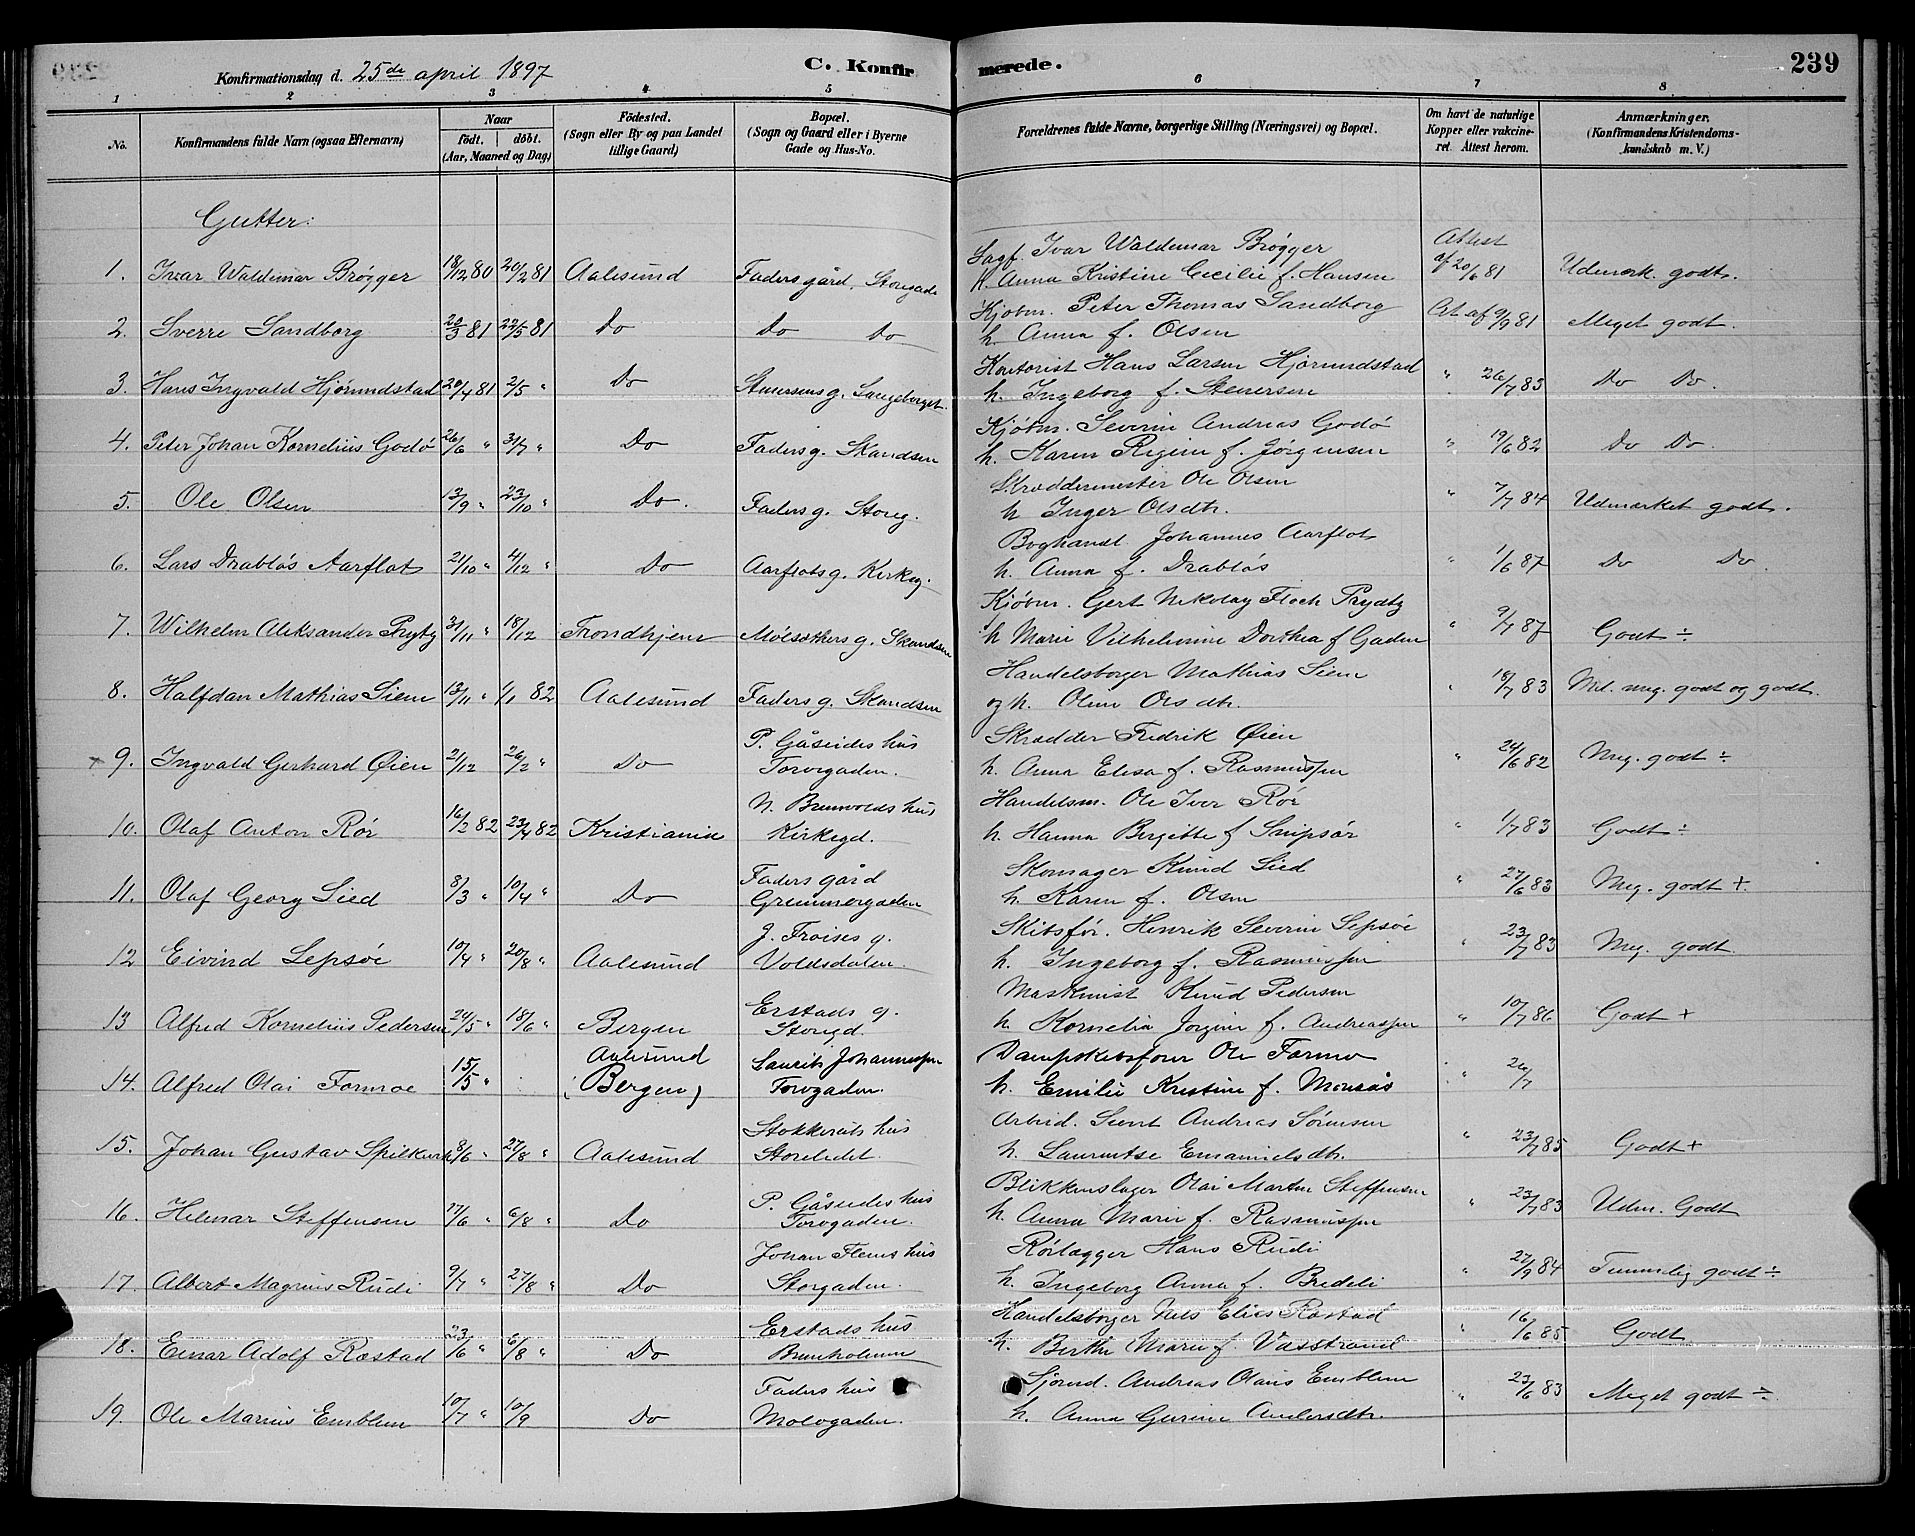 Konfirmationsdag d. 25de april 1897 C. Konfirmerede. 239
1 2 3 4 5 6 7 8
No. Konfirmandens fulde Navn (ogsaa Efternavn) Naar födt. döbt. (Aar, Maaned og Dag) Födested. (Sogn eller By og paa Landet tillige Gaard) Bopæl. (Sogn og Gaard eller i Byerne Gade og Hus-No. Forældrenes fulde Navne, borgerlige Stilling (Næringsvei) og Bopæl. Om havt de naturlige Kopper eller vakcineret. Attest herom. Anmærkninger. (Konfirmandens Kristendomskundskab m. V.)
Gutter:
Sagf. Ivar Waldemar Brøgger Attest
1. Ivar Waldemar Brøgger 18/12 80 20/2 81 Aalesund Faders gård, Storgade h. Anna Kristine Cecilie f. Hansen af 20/6 81 Udmærk. godt.
Kjøbm. Peter Thomas Sandborg
2. Sverre Sandborg 20/3 81 22/5 81 Do Do Do h. Anna f. Olsen At af 9/9 81 Meget godt.
Kontorist Hans Larsen Hjørundstad
3. Hans Ingvald Hjørundstad 20/4 81 2/5 " Do Stenersens g. h. Ingeborg f. Stenersen " 26/7 83 Do Do.
Kjøbm. Severin Andreas Godø
4. Peter Johan Kornelius Godø 26/6 " 31/7 " Do Faders g. Skandsen h. Karen Regine f. Jørgensen " 19/6 82 Do Do.
Skræddermester Ole Olsen
5. Ole Olsen 13/9 " 23/10 " Do. Faders g. Storg. h Inger Olsdtr. " 7/7 84 Udmærket godt.
Boghandl. Johannes Aarflot
6. Lars Drabløs Aarflot 21/10 " 4/12 " Do Aarflots g. Kirkeg. h. Anna f. Drabløs " 1/6 87 Do Do.
Kjøbm. Gert Nikolay Floch Prydtz
7. Wilhelm Aleksander Prytz 31/11 " 18/12 Trondhjem Molsæthers g. Skandsen h Marie Vilhelmine Dorthea f Gaden " 9/7 87 Godt ÷
Handelsborger Mathias Siem
8. Halfdan Mathias Siem 13/11 " 1/1 82 Aalesund Faders g. Skandsen og h. Oline Olsdtr. " 18/7 83 Ml. meg. godt og godt.
P. Gåseides hus Skrædder Fredrik Øien
+ 9. Ingvald Gerhard Øien 21/12 26/2 " Do Torvgaden. h. Anna Elesa f. Rasmussen " 24/6 82 Meg. godt ÷
N. Brunvolds hus Handelsm. Ole Iver Rør
10. Olaf Anton Rør 16/2 82 23/4 82 Kristiania Kirkegd. h. Hanna Bergitte f Snipsør " 1/7 83 Godt ÷
Faders gård Skomager Knud Lied
11. Olaf Georg Lied 8/3 " 10/4 " Do Grimmergaden h. Karen f. Olsen " 27/6 83 Meg. godt +
J. Froises g. Skibsfør. Henrik Severin Lepsøe
12 Eivind Lepsøe 10/4 " 20/8 " Aalesund Voldsdalen. h. Ingeborg f. Rasmussen " 23/7 83 Meg. godt
Erstads g. Maskinist Knud Pedersen
13 Alfred Kornelius Pedersen 24/5 " 18/6 " Bergen Storgd. h. Kornelia Jorgine f. Andreassen " 10/7 86 Godt +
Aalesund Lauritz Johannessen Dampskibsfører Ole Formo
14. Alfred Olai Formoe 15/5 " (Bergen) Torvgaden. h. Emilie Kristine f. Monsås " 26/7
Stokkereits hus Arbeid. Sivert Andreas Sørensen
15. Johan Gustav Spilkevik 8/6 " 27/8 " Aalesund Storeledet. h. Laurentse Emanuelsdtr. " 23/7 85 Godt +
P. Gåseides hus Blikkenslager Olai Martin Steffensen
16. Helmar Steffensen 17/6 " 6/8 " Do Torvgaden. h. Anna Marie f. Rasmussen " 23/7 83 Udm. Godt
Johan Flems hus Rørlægger Hans Rudi
17. Albert Magnus Rudi 9/7 " 27/8 " Do Storgaden. h. Ingeborg Anna f. Bredeli " 27/9 84 Temmelig godt ÷
Erstads hus Handelsborger Nils Elias Rastad
18. Einar Adolf Rastad 23/6 " 6/8 " Do Brunholmen h. Berthe Marie f. Vasstrand " 16/6 85 Godt
Faders hus Sjømd. Andreas Olaus Emblem
19. Ole Marius Emblem 10/7 " 10/9 Do Mologaden. h. Anna Gurine Andersdtr. " 23/6 83 Meget godt ÷